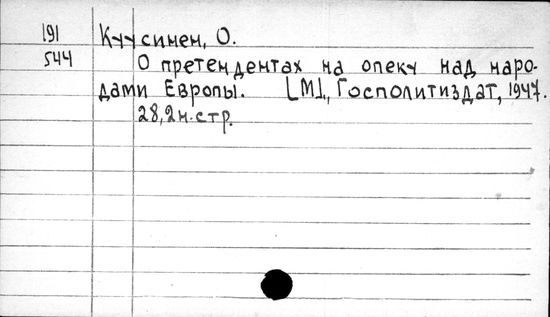 191 Куусинен, О.
544 О претендентах на опеку над наро-
дами Европы. [М], Госполитиздат, 1947.
28,2н.стр.